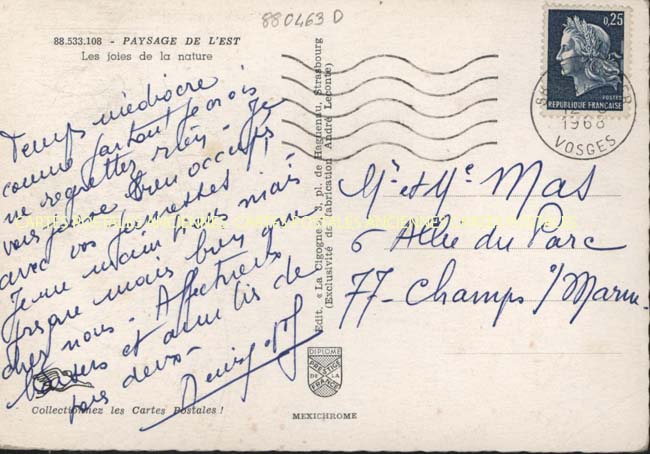 880463 D
88.533.108 - PAYSAGE DE L'EST
Les joies de la nature
Temps médiocre
comme partout je crois
ne regrettez rien. Je
vous pense bien occupés
avec vos
Je me maintiens mais
mais bien que
chez nous - Affectueux
baisers et amitiés de
nous deux.
Edit. « La Cigogne », 3, pl. de Haguenau, Strasbourg
(Exclusivité de fabrication André Leconte)
0,25
POSTES
REPUBLIQUE FRANÇAISE
1968
VOSGES
Mr et Me Mas
6 Allée du Parc
77 - Champs s/Marne
DIPLOME
PRESTIGE
DE LA
FRANCE
Collectionnez les Cartes Postales !
MEXICHROME